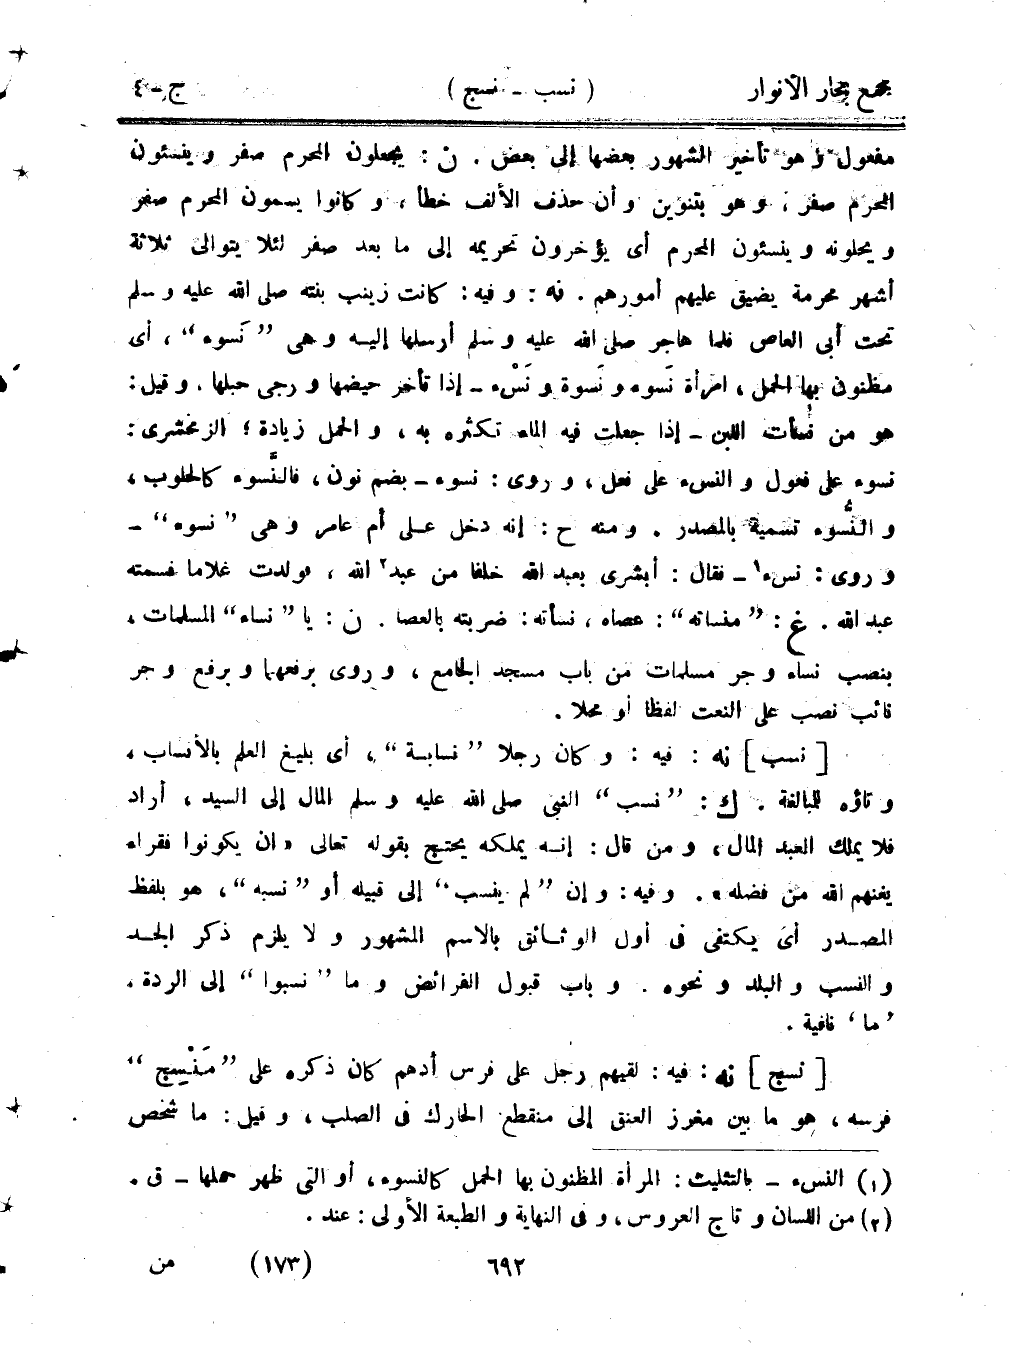 مجمع بحار الأنوار ( نسب - نسج ) ج - ٤
مفعول و هو تأخير الشهور بعضها إلى بعض . ن : يجعلون المحرم صفر و ينسئون
المحرم صفر ، و هو بتنوين و أن حذف الألف خطأ ، و كانوا يسمون المحرم صفر
و يحلونه و ينسئون المحرم أى يؤخرون تحريمه إلى ما بعد صفر لئلا يتوالى ثلاثة
أشهر محرمة يضيق عليهم أمورهم . نه : و فيه : كانت زينب بنته صلى الله عليه و سلم
تحت أبى العاص فلما هاجر صلى الله عليه و سلم أرسلها إليه و هى ” نَسوء “ ، أى
مظنون بها الحمل ، امرأة نَسوء و نَسوة و نَسْء - إذا تأخر حيضها و رجى حبلها . و قيل :
هو من نُسأت اللبن - إذا جعلت فيه الماء تكثره به ، و الحمل زيادة ؛ الزمخشرى :
نسوء على فعول و النسء على فعل ، و روى : نسوء - بضم نون ، فالنَّسوء كالحلوب ،
و النُّسوء تسمية بالمصدر . و منه ح : إنه دخل على أم عامر و هى ” نسوء “ -
و روى : نسء١ - فقال : أبشرى بعبد الله خلفا من عبد٢ الله ، فولدت غلاما فسمته
عبد الله . غ : ” منساته “ : عصاه ، نسأته : ضربته بالعصا . ن : يا ” نساء “ المسلمات ،
بنصب نساء و جر مسلمات من باب مسجد الجامع ، و روى برفعهما و برفع و جر
نائب نصب على النعت لفظا أو محلا .
[ نسب ] نه : فيه : و كان رجلا ” نسابة “ ، أى بليغ العلم بالأنساب ،
و تاؤه للمبالغة . ك : ” نسب “ النبى صلى الله عليه و سلم المال إلى السيد ، أراد
فلا يملك العبد المال ، و من قال : إنه يملكه يحتج بقوله تعالى « ان يكونوا فقراء
يغنهم الله من فضله » . و فيه : و إن ” لم ينسب “ إلى قبيله أو ” نسبه “ ، هو بلفظ
المصدر أى يكتفى فى أول الوثائق بالاسم المشهور و لا يلزم ذكر الجد
و النسب و البلد و نحوه . و باب قبول الفرائض و ما ” نسبوا “ إلى الردة ،
’ ما ‘ نافية .
[ نسج ] نه : فيه : لقيهم رجل على فرس أدهم كان ذكره على ” مَنْسِج “
فرسه ، هو ما بين مغرز العنق إلى منقطع الحارك فى الصلب ، و قيل : ما شخص
(١) النسء - بالتثليث : المرأة المظنون بها الحمل كالنسوء ، أو التى ظهر حملها - ق .
(٢) من اللسان و تاج العروس ، و فى النهاية و الطبعة الأولى : عند .
٦٩٢ (١٧٣) من